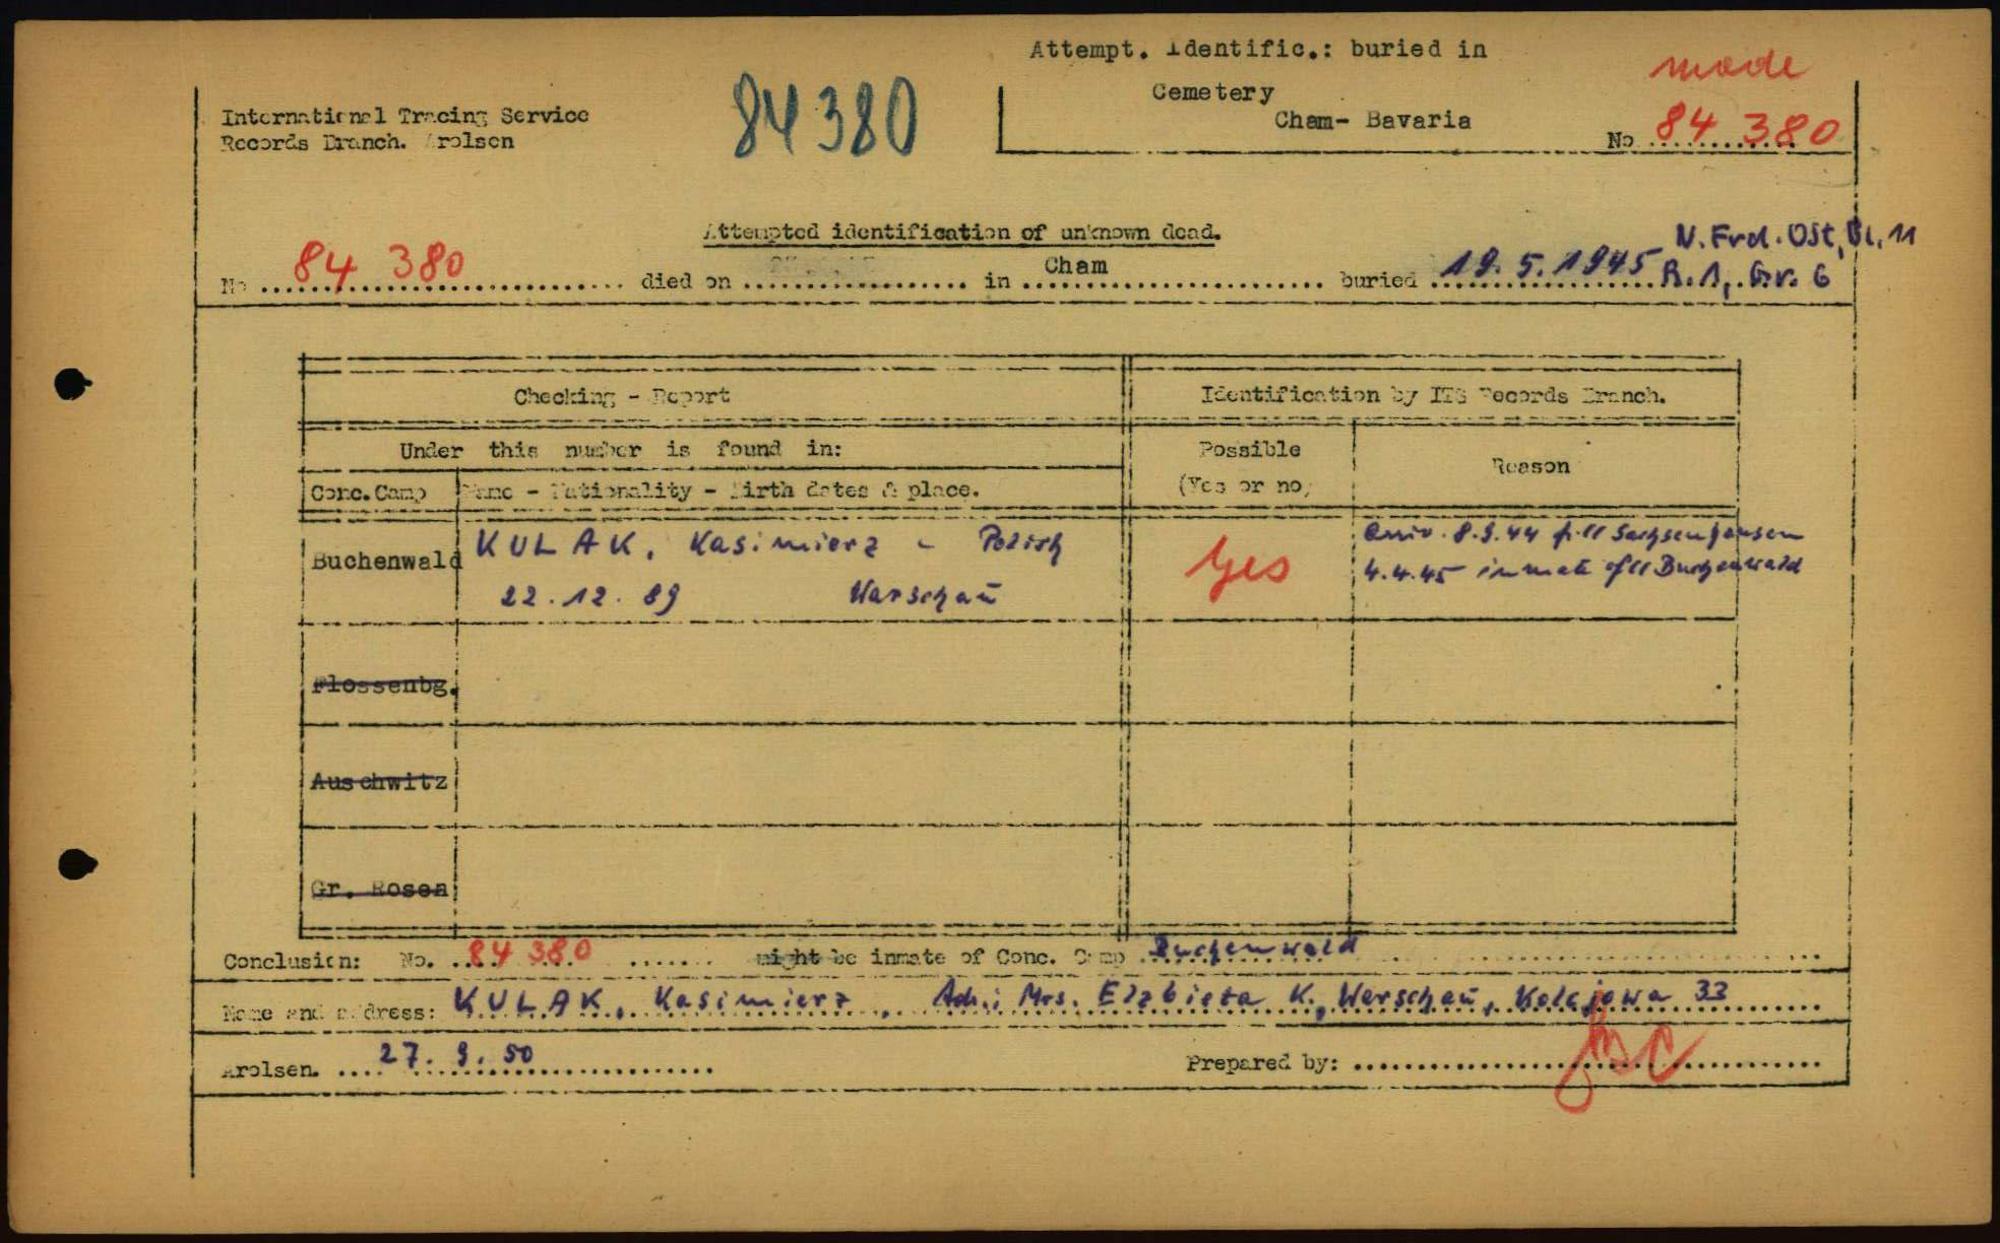 Attempt. Identific.: buried in
Cemetery
Cham- Bavaria
made
No 84 380
International Tracing Service
Records Branch. Arolsen
84380
Attempted identification of unknown dead.
N. Frd. Ost, Bl. 11
No 84 380 died on in Cham buried 19.5.1945 R.1, Gr. 6
Checking - Report
Identification by ITS Records Branch.
Under this number is found in:
Possible
(Yes or no)
Reason
Conc. Camp
Name - Nationality - Birth dates & place.
Buchenwald
KULAK, Kasimierz - Polish
22.12.89 Warschau
Yes
8.9.44 Sachsenhausen
4.4.45 inmate of cc Buchenwald
Flossenbg.
Auschwitz
Gr. Rosen
Conclusion: No. 84 380 might be inmate of Conc. Camp Buchenwald
Name and address: KULAK, Kasimierz, Adr.: Mrs. Elzbieta K., Warschau, Kolejowa 33
Arolsen. 27.9.50
Prepared by: